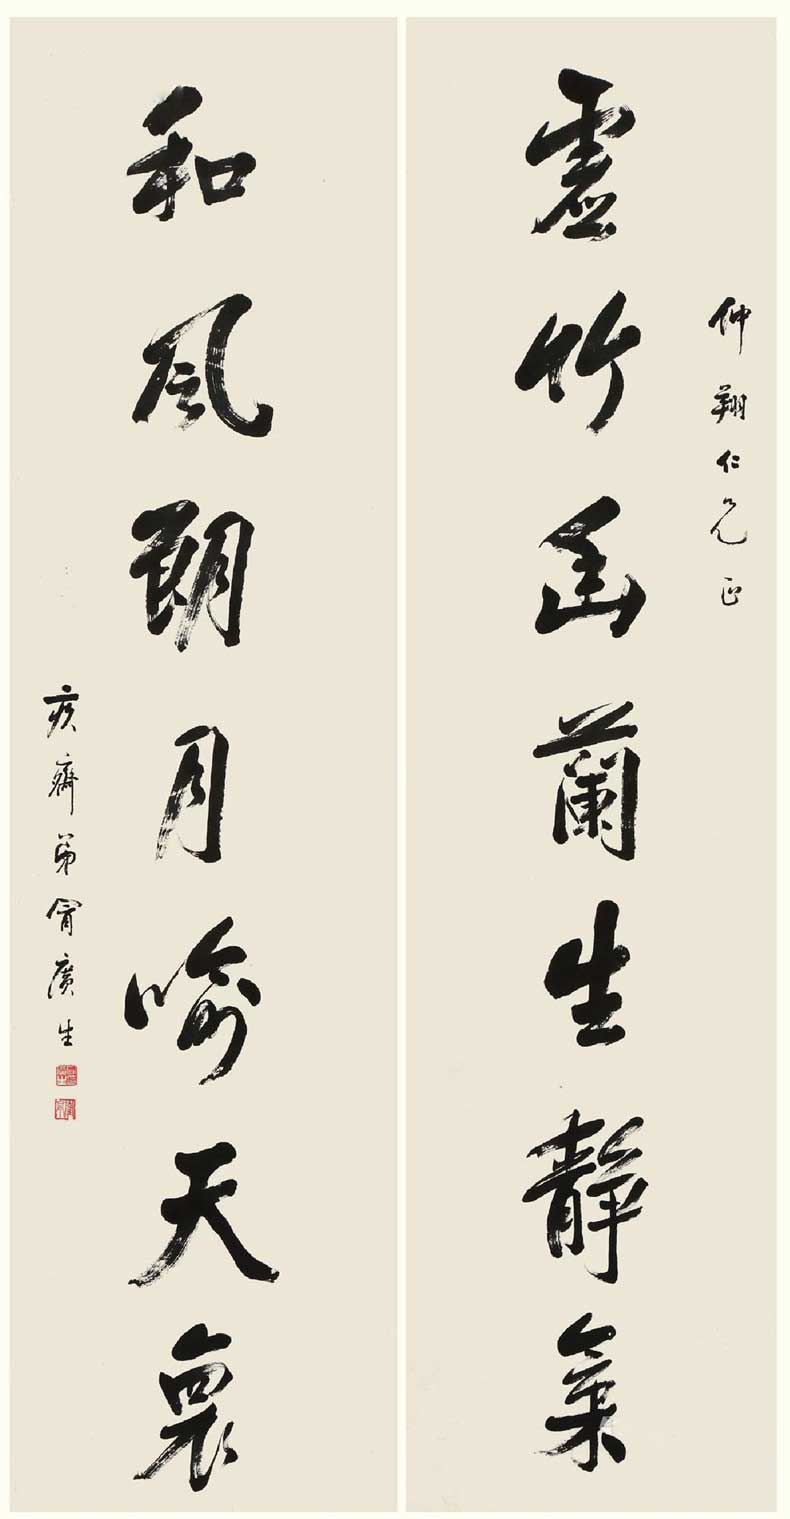 仲翔仁兄正
虛竹幽蘭生靜氣
和風朗月喻天襄
疚齋弟冒廣生